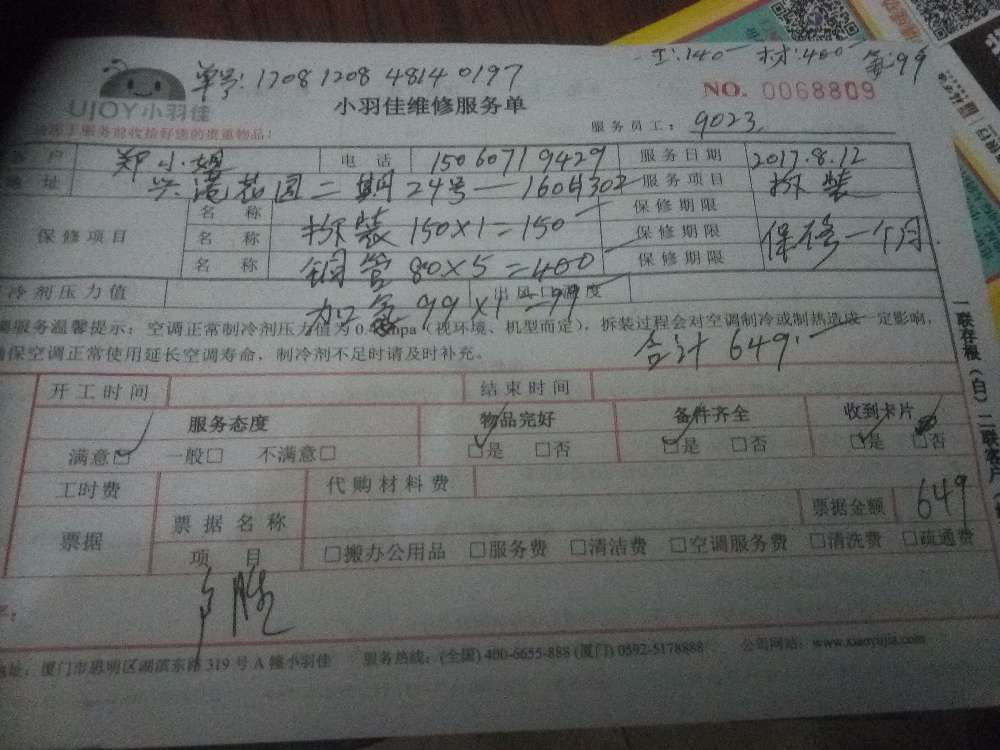 工:140 材:400 氟:99
单号: 1708 1208 4814 0197
NO. 0068809
UJOY小羽佳
小羽佳维修服务单
服务员工: 9023
服务前收拾好您的贵重物品!
客户 郑小娟 电话 15060719429 服务日期 2017.8.12
地址 兴港花园二期24号—1604302 服务项目 拆装
保修项目 名称 拆装 150×1=150 保修期限
名称 保修期限 保修一个月.
名称 铜管 80×5=400 保修期限
冷剂压力值 加氟 99×1=99 出风口温度
调服务温馨提示:空调正常制冷剂压力值为0.4 mpa(视环境、机型而定),拆装过程会对空调制冷或制热造成一定影响,
保空调正常使用延长空调寿命,制冷剂不足时请及时补充。
合计 649.
开工时间 结束时间
服务态度 物品完好 备件齐全 收到卡片
满意□ 一般□ 不满意□ □是 □否 □是 □否 □是 □否
工时费 代购材料费
票据 票据名称 票据金额 649
项目 □搬办公用品 □服务费 □清洁费 □空调服务费 □清洗费 □疏通费
地址:厦门市思明区湖滨东路319号A幢小羽佳 服务热线:(全国) 400-6655-888 (厦门) 0592-5178888 公司网站:www.xiaoyujia.com
一联存根(白)二联客户